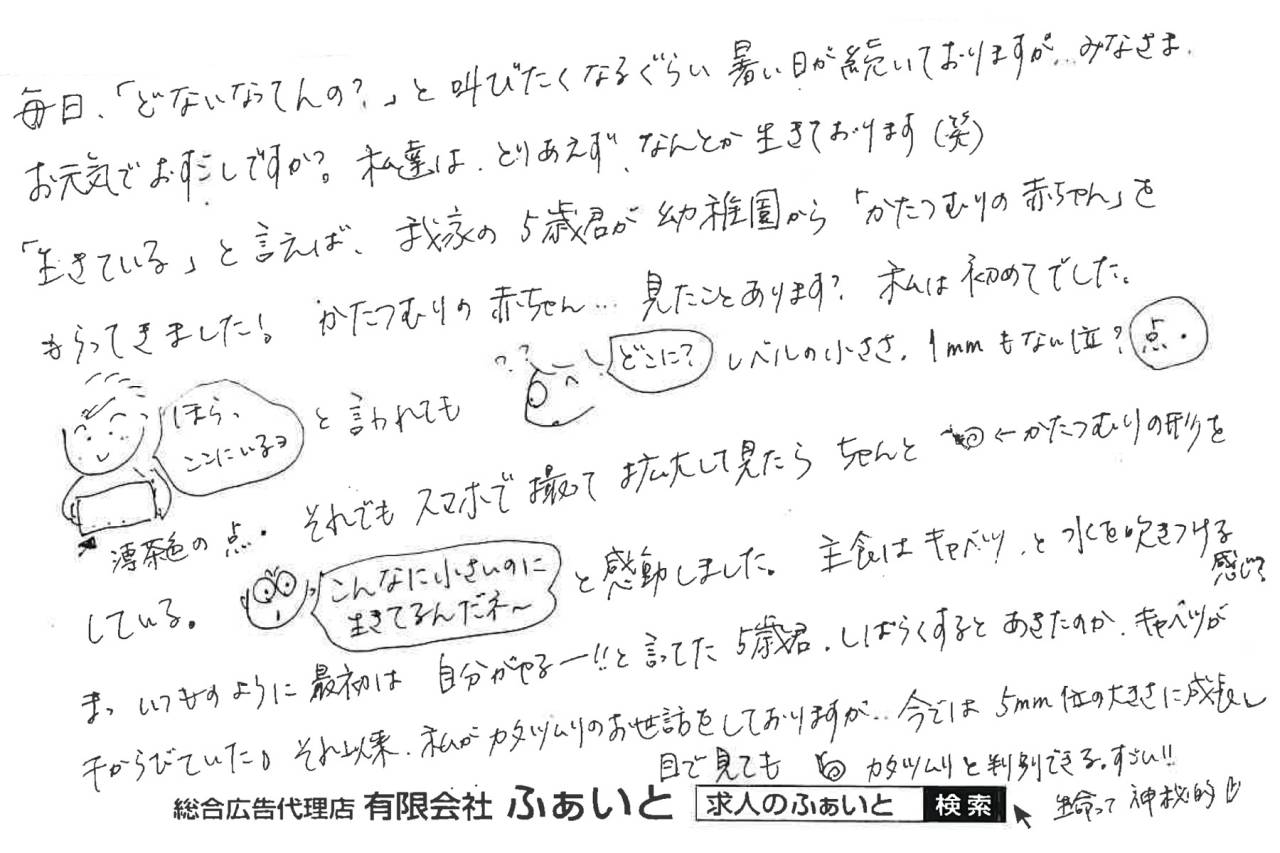 毎日、「どないなってんの？」と叫びたくなるぐらい暑い日が続いておりますが…みなさま、
お元気でお過ごしですか？私達は、とりあえず、なんとか生きております(笑)
「生きている」と言えば、我家の5歳君が幼稚園から「かたつむりの赤ちゃん」を
もらってきました！かたつむりの赤ちゃん…見たことあります？私は初めてでした。
ほら、
ここにいるヨ
と言われても
??
どこに？
レベルの小ささ。1mmもない位？
点・
薄茶色の点・それでもスマホで撮って拡大して見たらちゃんと ←かたつむりの形を
している。
こんなに小さいのに
生きてるんだネ〜
と感動しました。主食はキャベツ、と水を吹きつける
感じ?
まっいつものように最初は自分がやるー!!と言ってた5歳君。しばらくするとあきたのか、キャベツが
干からびていた。それ以来、私がカタツムリのお世話をしておりますが…今では5mm位の大きさに成長し
目で見ても カタツムリと判別できる。すごい!!
生命って神秘的
総合広告代理店 有限会社 ふぁいと 求人のふぁいと 検索